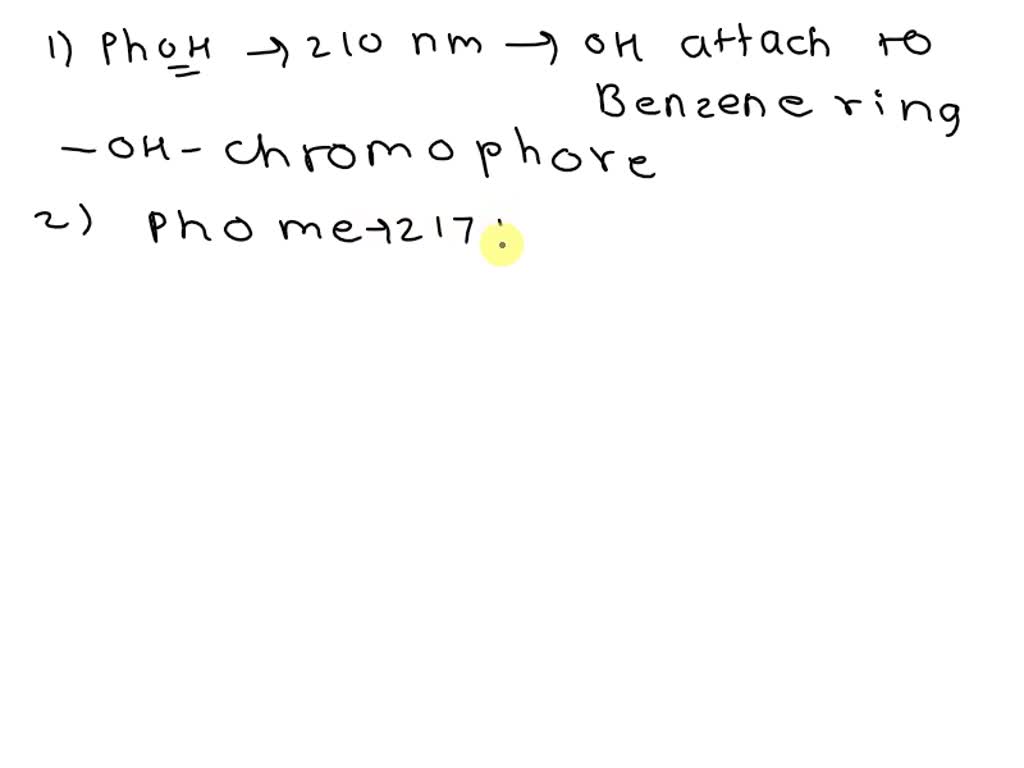 1) PhOH → 210 nm → OH attach to
Benzene ring
- OH - chromophore
2) PhOMe → 217